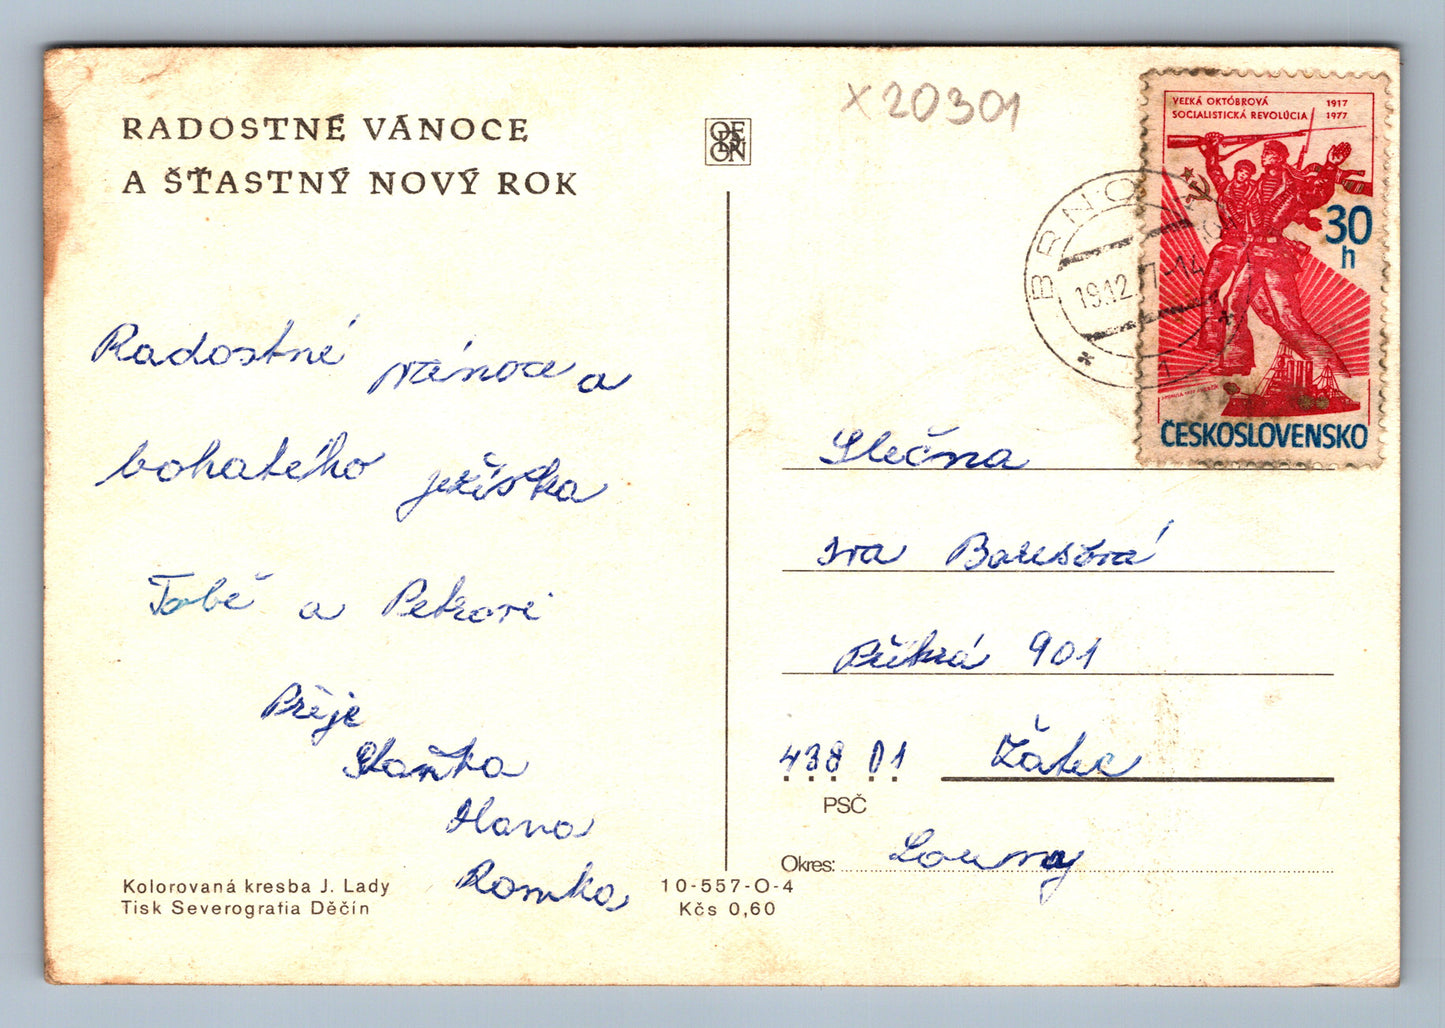 RADOSTNÉ VÁNOCE
A ŠŤASTNÝ NOVÝ ROK
ODEON
x20301
VEĽKÁ OKTÓBROVÁ 1917
SOCIALISTICKÁ REVOLÚCIA 1977
30
h
ČESKOSLOVENSKO
BRNO
19.12.77-14
Radostné vánoce a
bohatého ježíška
Tobě a Petrovi
Přeje
Staňka
Hana
Romka
Slečna
Iva
901
438 01 Žátec
PSČ
Okres: Louny
Kolorovaná kresba J. Lady
Tisk Severografia Děčín
10-557-O-4
Kčs 0,60